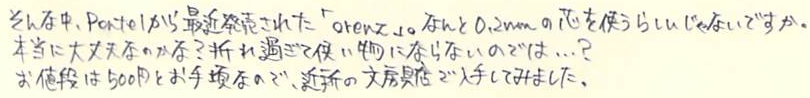 そんな中、Pentelから最近発売された「orenz」。なんと0.2mmの芯を使うらしいじゃないですか。
本当に大丈夫なのかな？折れ過ぎて使い物にならないのでは…？
お値段は500円とお手頃なので、近所の文房具店で入手してみました。